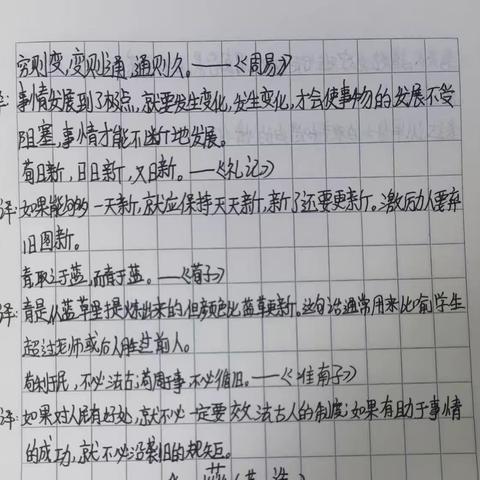 穷则变,变则通,通则久。——《周易》
译:事情发展到了极点,就要发生变化,发生变化,才会使事物的发展不受
阻塞,事情才能不断地发展。
苟日新,日日新,又日新。——《礼记》
译:如果能够一天新,就应保持天天新,新了还要更新。激励人要弃
旧图新。
青取之于蓝,而青于蓝。——《荀子》
译:青是从蓝草里提炼出来的,但颜色比蓝草更新。这句话通常用来比喻学生
超过老师或后人胜过前人。
苟利于民,不必法古;苟周于事,不必循旧。——《淮南子》
译:如果对人民有好处,就不必一定要效法古人的制度;如果有助于事情
的成功,就不必沿袭旧的规矩。